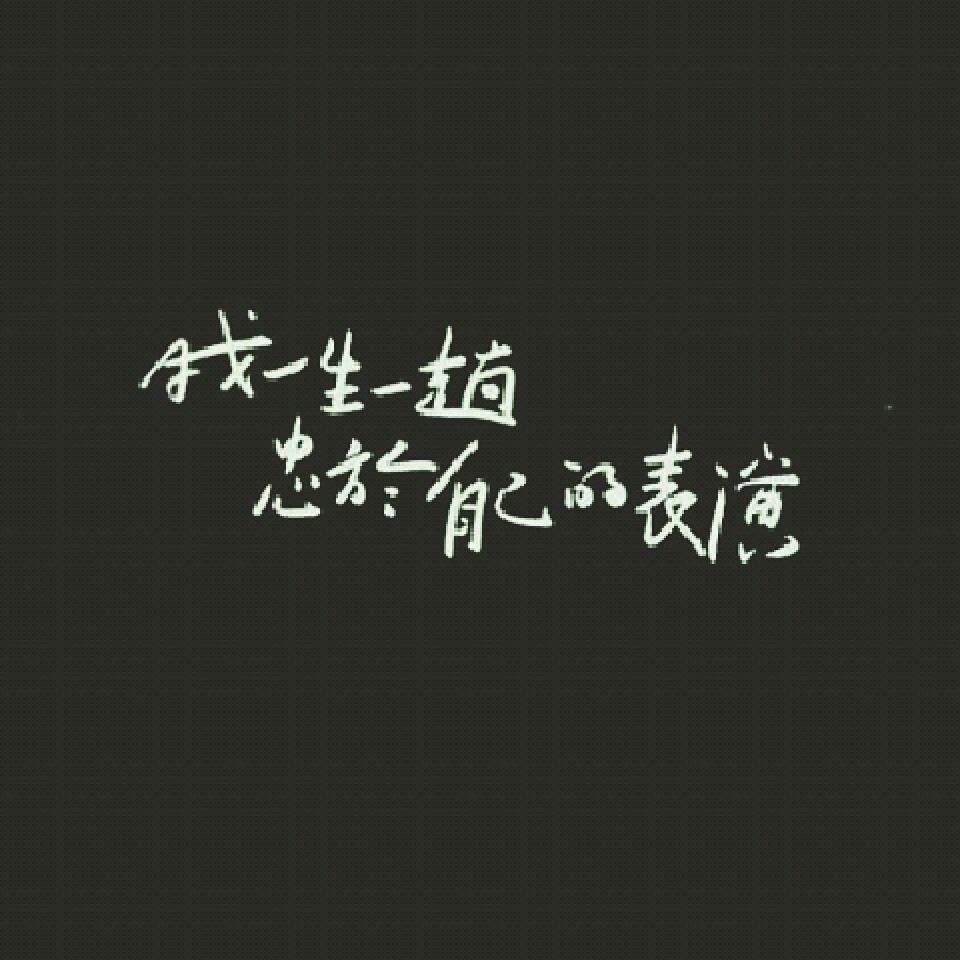 我一生一趟
忠於自己的表演